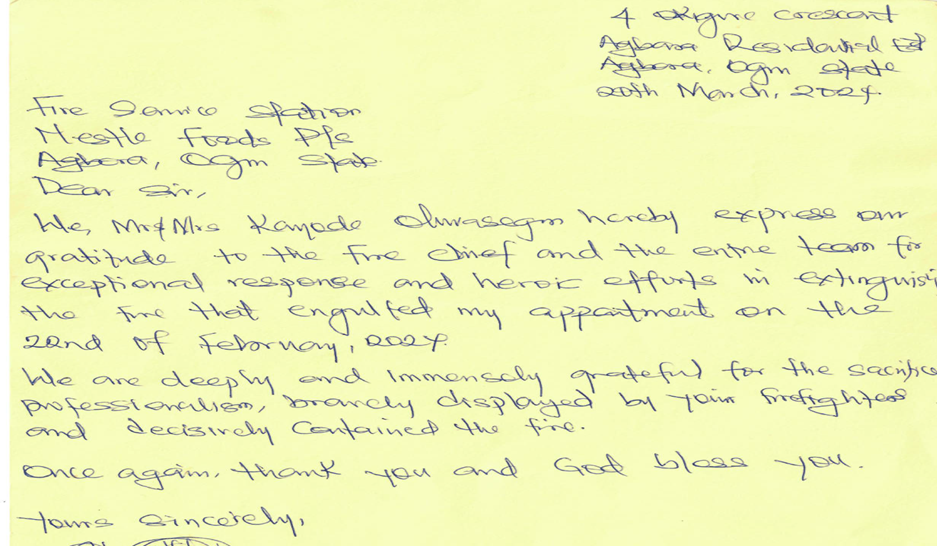 4 Okigwe Crescent
Agbara Residential Est
Agbara, Ogun State
20th March, 2024.
Fire Service Station
Nestle Foods Plc
Agbara, Ogun State.
Dear Sir,
We, Mr & Mrs Kayode Oluwasegun hereby express our
gratitude to the Fire Chief and the entire team for
exceptional response and heroic efforts in extinguish
the fire that engulfed my appartment on the
22nd of February, 2024.
We are deeply and immensely grateful for the sacrifice
professionalism, bravely displayed by your firefighters
and decisively contained the fire.
Once again, thank you and God bless you.
Yours Sincerely,